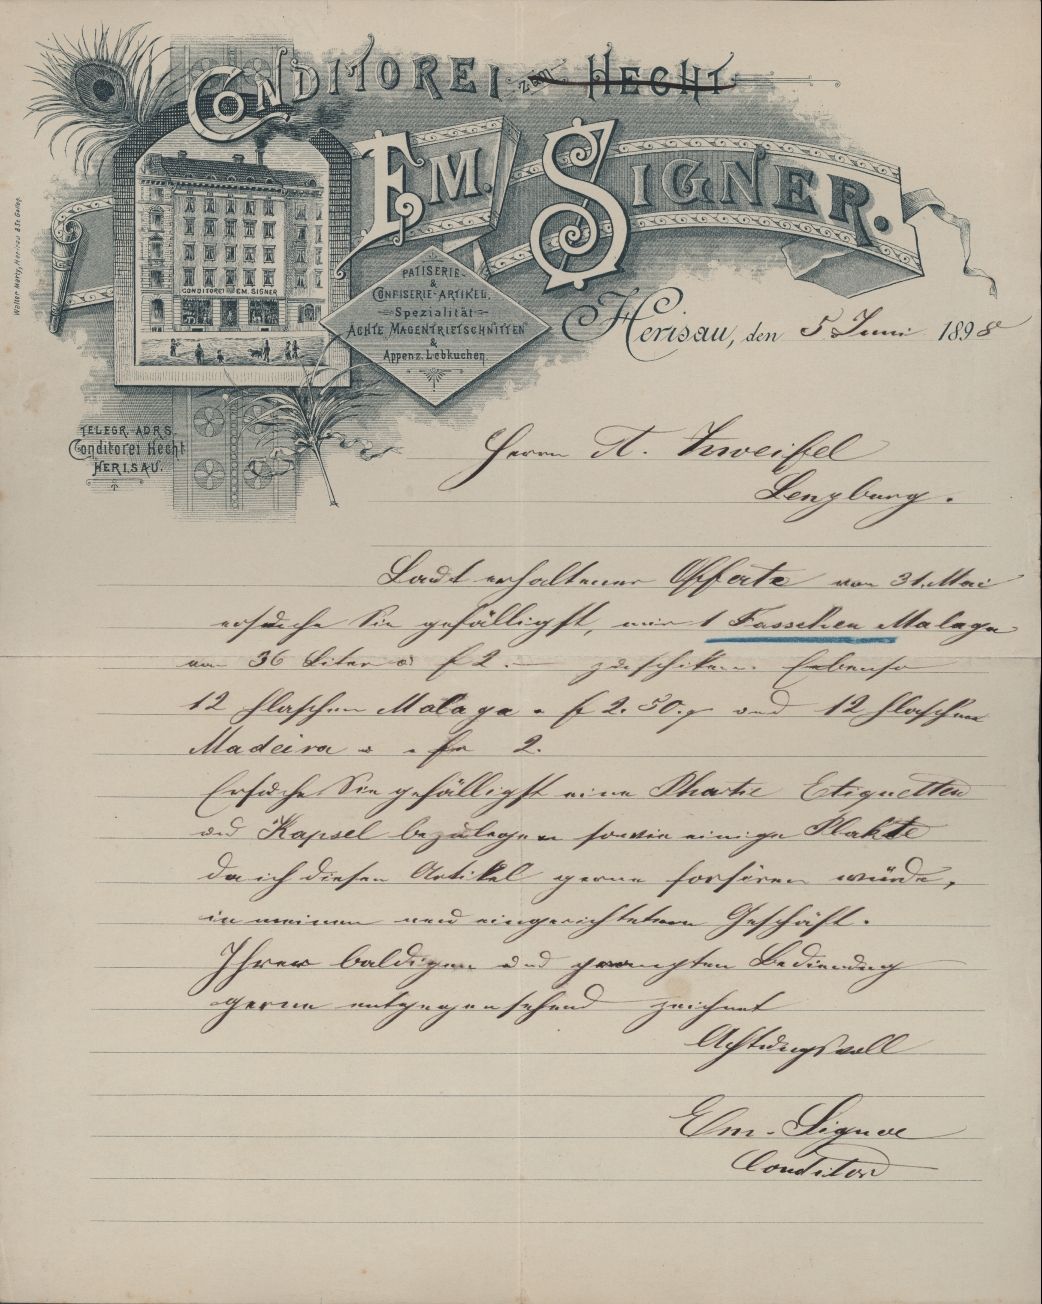 CONDITOREI zum HECHT
EM. SIGNER.
CONDITOREI EM. SIGNER
PATISERIE-
&
CONFISERIE-ARTIKEL.
Spezialität
ÄCHTE MAGENTRIETSCHNITTEN
&
Appenz. Lebkuchen
Walter Marty, Herisau & St. Gallen.
TELEGR. ADRS.
Conditorei Hecht
HERISAU.
Herisau, den 5 Juni 1898
Herrn A. Zweifel
Lenzburg.
Laut erhaltener Offerte von 31. Mai
ersuche Sie gefälligst, mir 1 Fasschen Malaga
von 36 Liter à f 2. — zuschiken. Eebenso
12 flaschen Malaga à f 2.50. und 12 flaschen
Madeira à fr 2.
Ersuche Sie gefälligst eine Phartie Etiquetten
und Kapsel bezulegen sowie einige Plakate
da ich diesen Artikel gerne forsieren würde,
in meinem neu eingerichteten Geschäft.
Ihrer baldigen und prompten Bedienung
gerne entgegensehend zeichnet
Achtungsvoll
Em. Signer
Conditor